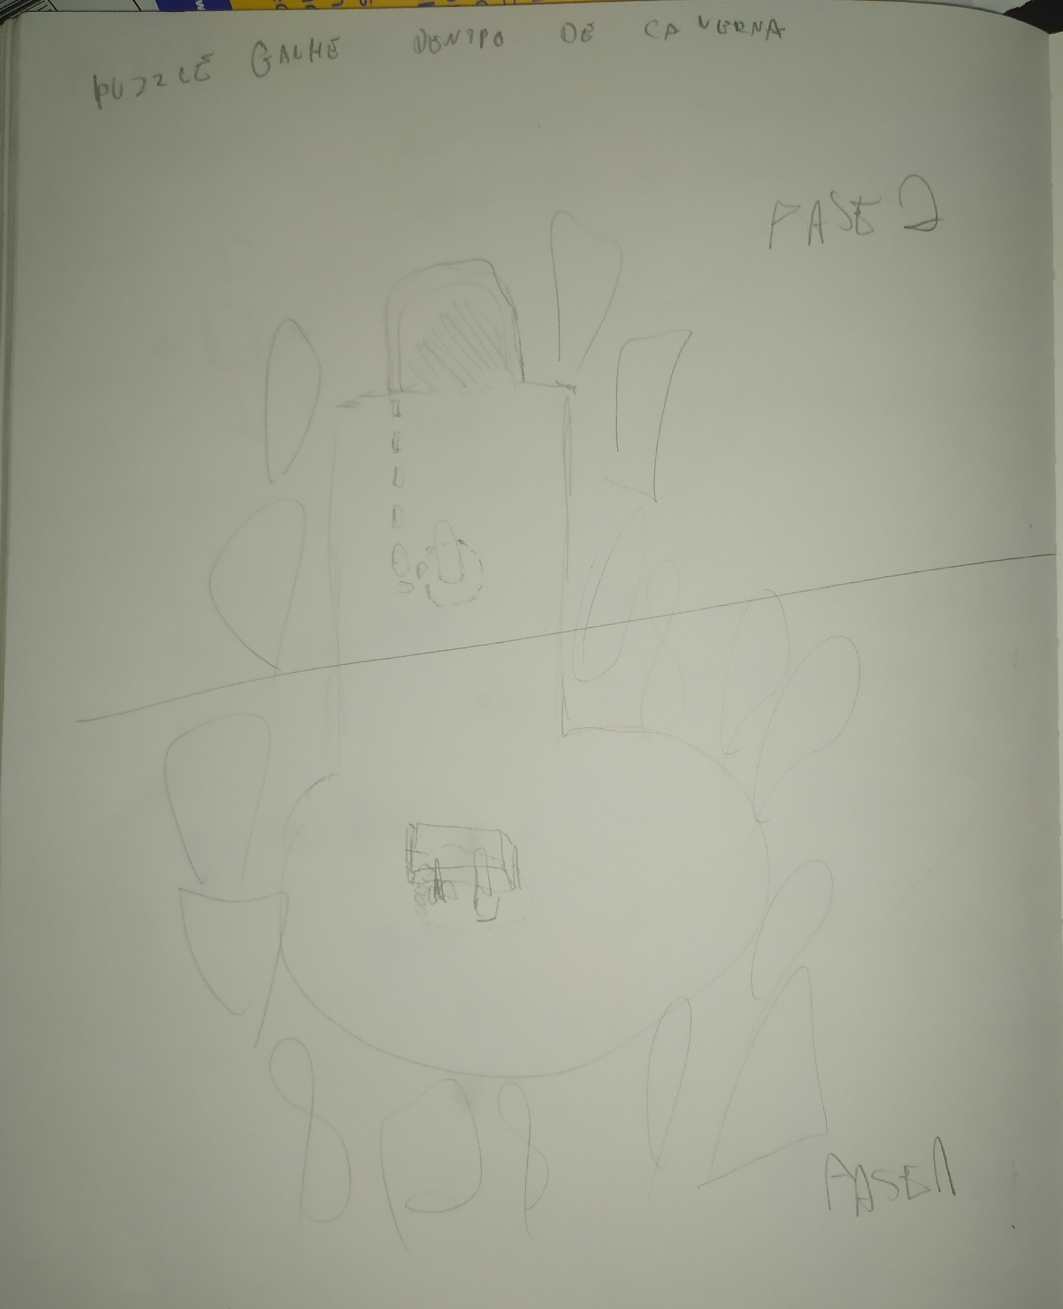 PUZZLE GAME DENTRO DE CAVERNA
FASE 2
FASE 1